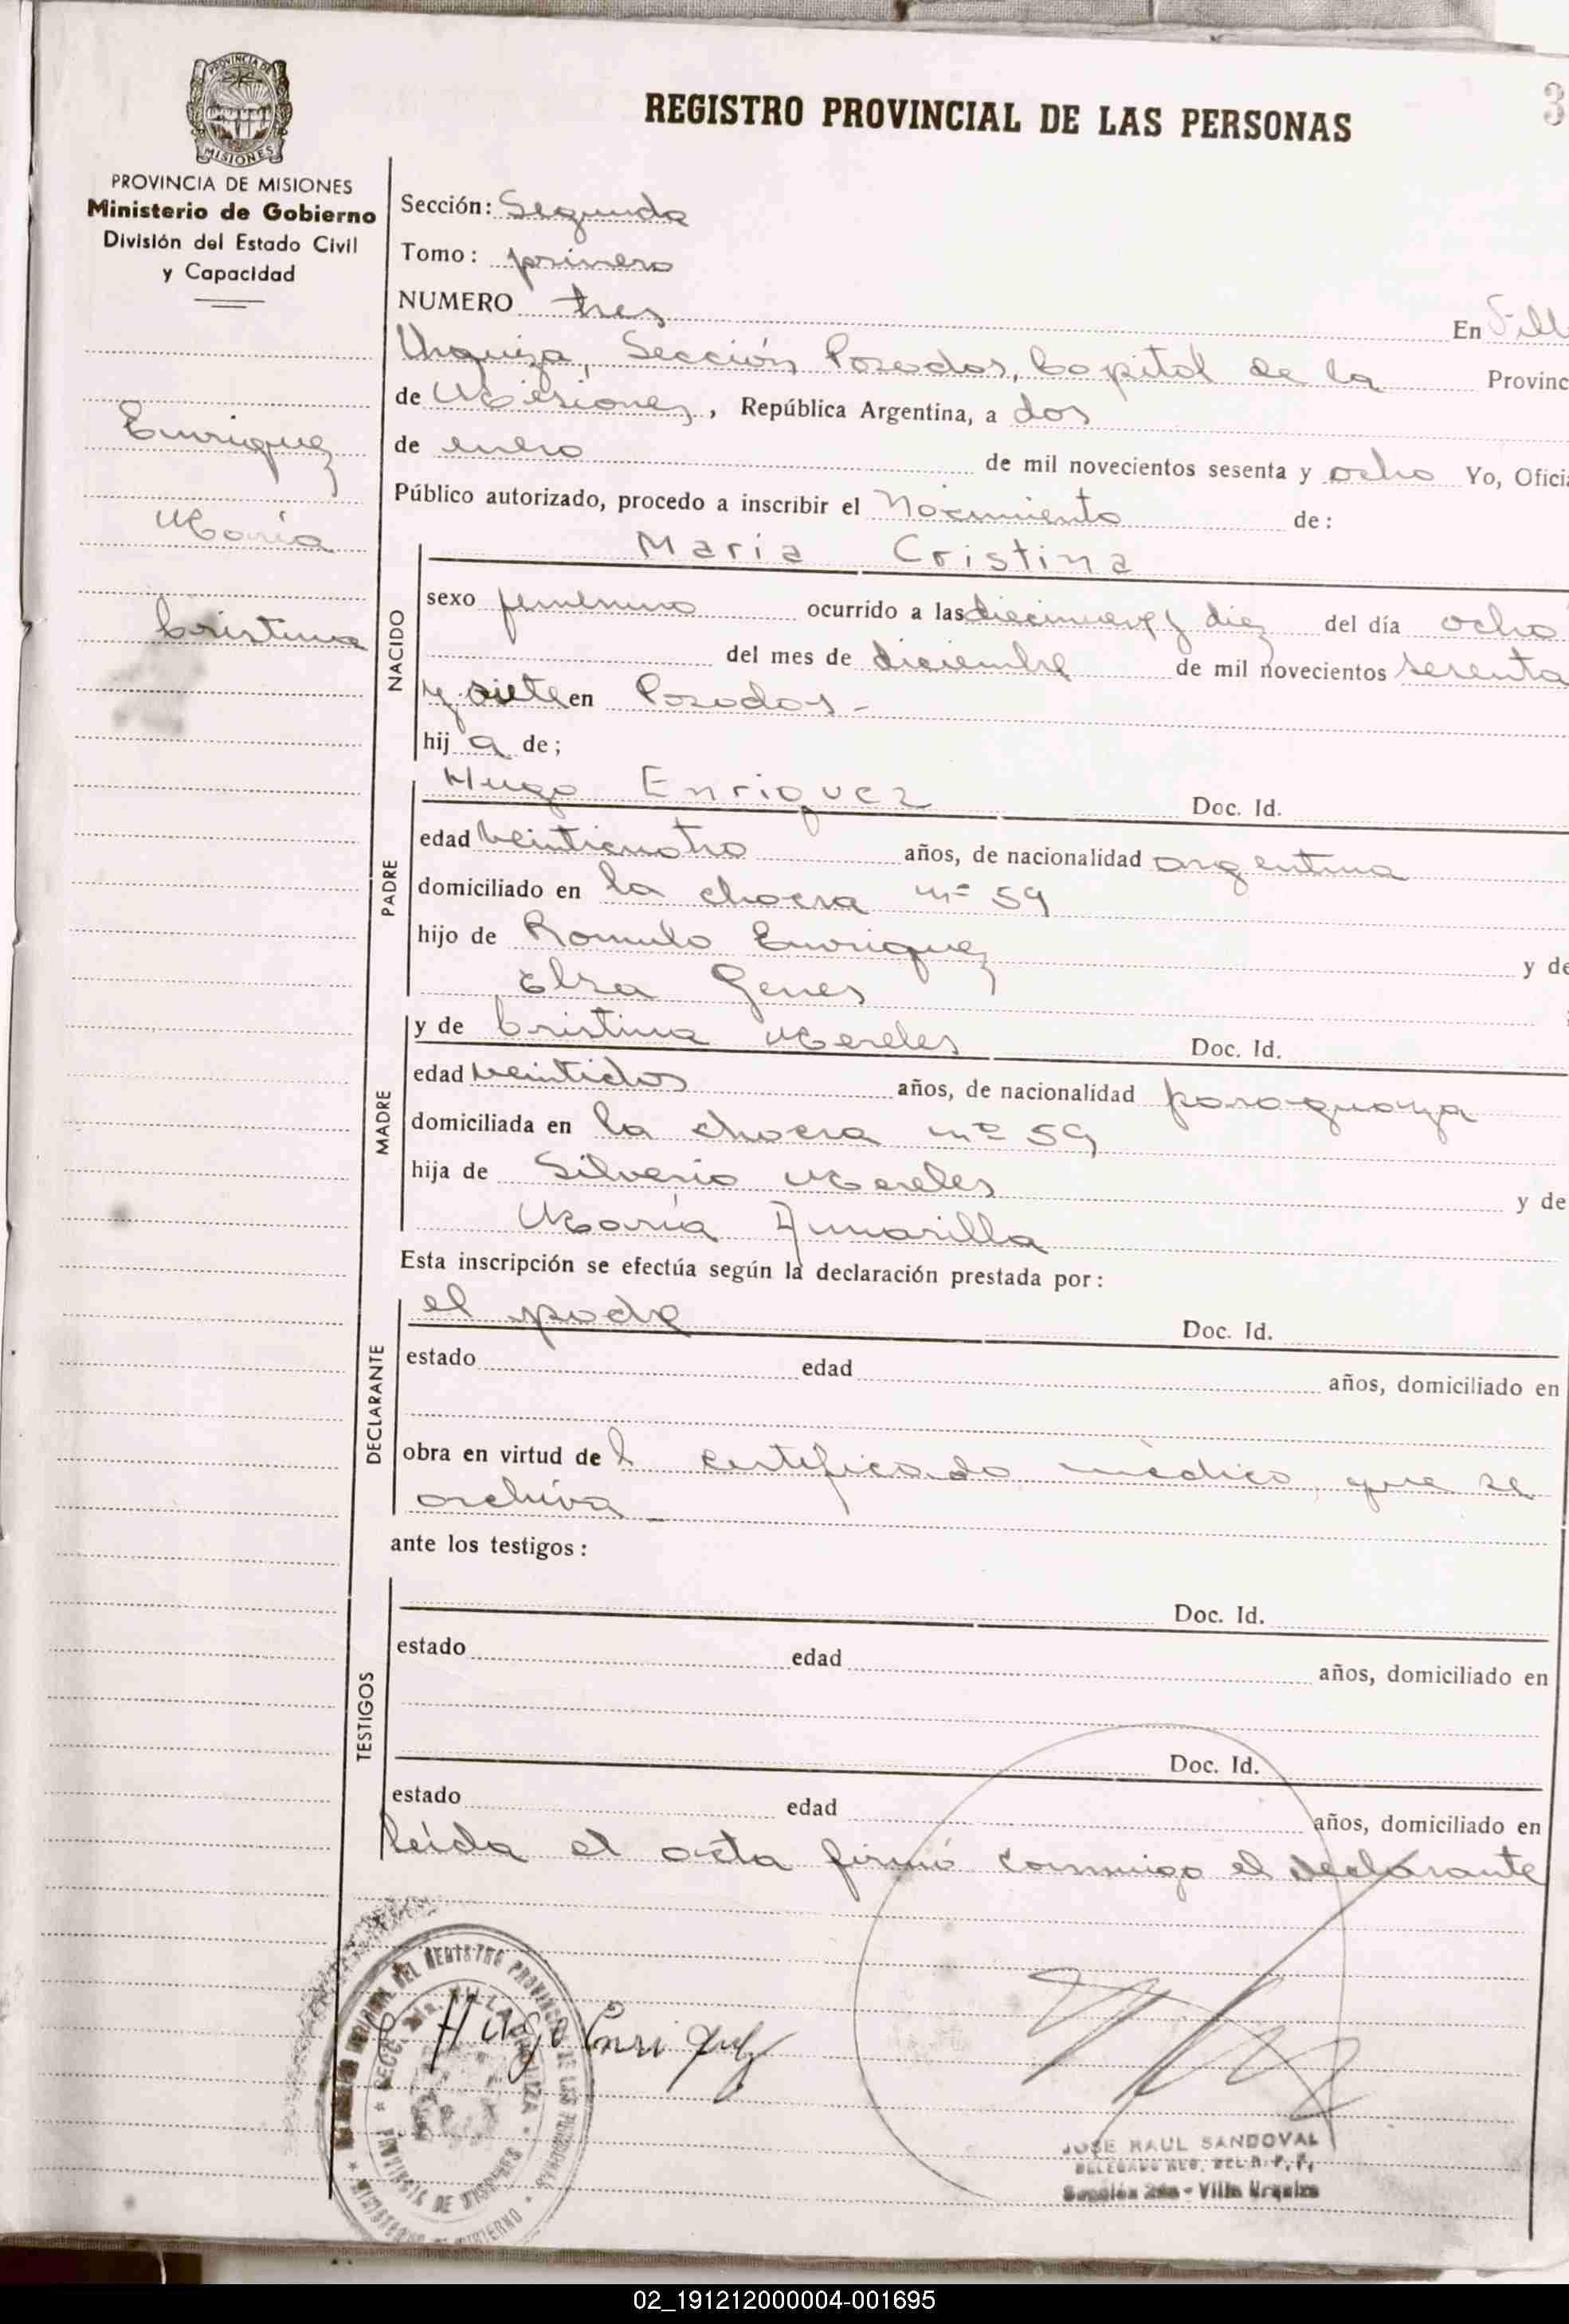 PROVINCIA DE
MISIONES
PROVINCIA DE MISIONES
Ministerio de Gobierno
División del Estado Civil
y Capacidad
Enriquez
María
Cristina
REGISTRO PROVINCIAL DE LAS PERSONAS
3
Sección: Segunda
Tomo: primero
NUMERO tres En Vill
Urquiza, Sección Posadas, Capital de la Provinc
de Misiones, República Argentina, a dos
de enero de mil novecientos sesenta y ocho Yo, Ofici
Público autorizado, procedo a inscribir el Nacimiento de:
María Cristina
NACIDO
sexo femenino ocurrido a las diecinueve y diez del día ocho
del mes de diciembre de mil novecientos sesenta
y siete en Posadas-
hij a de;
PADRE
Hugo Enriquez Doc. Id.
edad veinticuatro años, de nacionalidad argentina
domiciliado en la chacra nº 59
hijo de Romulo Enriquez y de
Elsa Genes
MADRE
y de Cristina Mereles Doc. Id.
edad veintidos años, de nacionalidad paraguaya
domiciliada en la chacra nº 59
hija de Silverio Mereles y de
María Amarilla
Esta inscripción se efectúa según la declaración prestada por:
DECLARANTE
el padre Doc. Id.
estado edad años, domiciliado en
obra en virtud de l certificado médico, que se
archiva
ante los testigos:
TESTIGOS
Doc. Id.
estado edad años, domiciliado en
Doc. Id.
estado edad años, domiciliado en
leída el acta firmó conmigo el declarante
Hugo Enriquez
DEL REGISTRO PROVINCIAL DE LAS PERSONAS
SECC. 2da. VILLA URQUIZA
PROVINCIA DE MISIONES
MINISTERIO DE GOBIERNO
JOSE RAUL SANDOVAL
DELEGADO REG. DEL R. P. P.
Sección 2da - Villa Urquiza
02_191212000004-001695